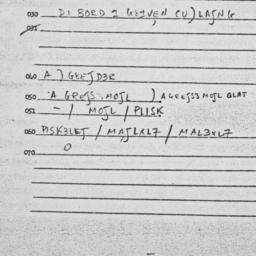 030 DI BORD 2 GEJVEN CU) LAJNG
035
040 A ) GREJD3R
050 A GREJS MOJL ) A GREJS3 MOJL GLAT
051 - / MOJL / PLISK
060 PISK3LEJ / MAJLXL7 / MAL3XL7
070